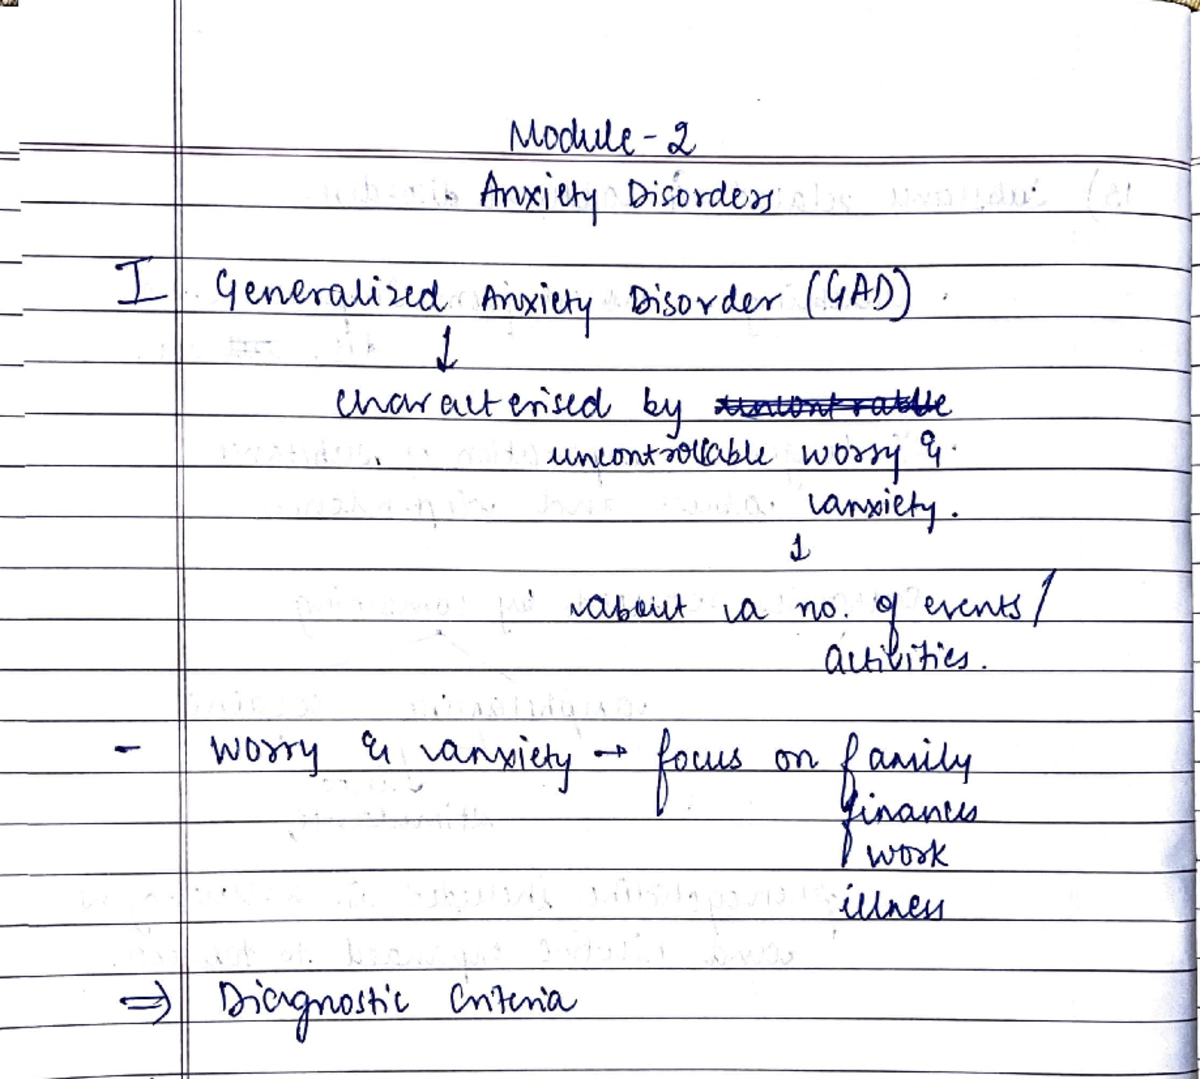 Module-2
Anxiety Disorders
I Generalized Anxiety Disorder (GAD)
↓
characterised by
uncontrollable worry &
anxiety.
↓
about a no. of events/
activities.
- worry & anxiety → focus on family
finances
work
illness
⇒ Diagnostic Criteria